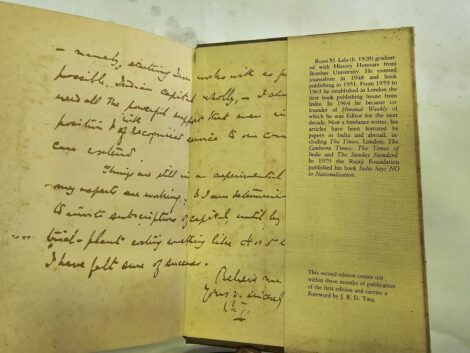 - namely, starting Iron works with as
possible, Indian capital wholly, - I
need all the powerful support that men in
position & of recognised service to our
can extend.
Things are still in an experimental
my experts are working, & I am
to invite subscription of capital, until by
trial-plant costing something like
I have felt sure of success.
Believe me
Yours v. sincerely
Russi M. Lala (b. 1928) graduat-
ed with History Honours from
Bombay University. He entered
journalism in 1948 and book
publishing in 1951. From 1959 to
1963 he established in London the
first book publishing house from
India. In 1964 he became co-
founder of Himmat Weekly of
which he was Editor for the next
decade. Now a freelance writer, his
articles have been featured by
papers in India and abroad, in-
cluding The Times, London; The
Canberra Times, The Times of
India and The Sunday Standard.
In 1979 the Rajaji Foundation
published his book India Says NO
to Nationalisation.
This second edition comes out
within three months of publication
of the first edition and carries a
Foreword by J. R. D. Tata.